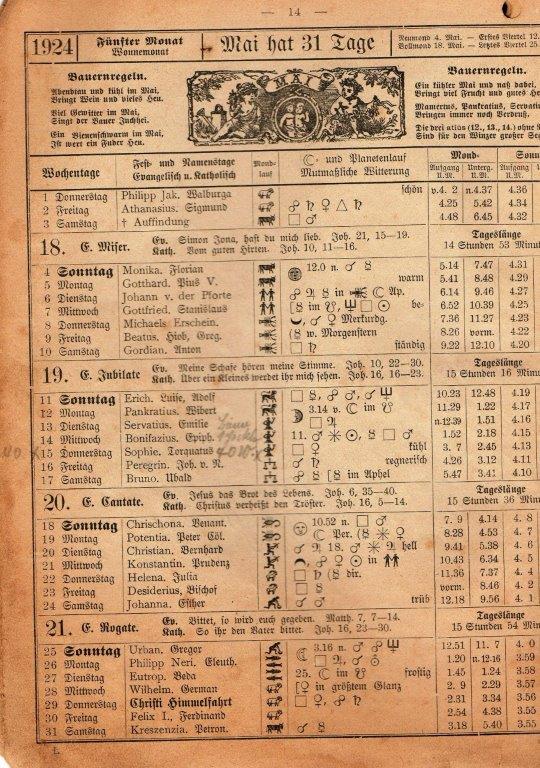 — 14 —
1924
Fünfter Monat
Wonnemonat
Mai hat 31 Tage
Neumond 4. Mai. — Erstes Viertel 12.
Vollmond 18. Mai. — Letztes Viertel 25.
Bauernregeln.
Abendtau und kühl im Mai,
Bringt Wein und vieles Heu.
Viel Gewitter im Mai,
Singt der Bauer Juchhei.
Ein Bienenschwarm im Mai,
Ist wert ein Fuder Heu.
MAI
Bauernregeln.
Ein kühler Mai und naß dabei,
Bringt viel Frucht und gutes
Mamertus, Pankratius,
Bringen immer noch Verdruß.
Die drei (12., 13., 14.) ohne
Sind für den Winzer großer
Wochentage
Fest- und Namenstage
Evangelisch u. Katholisch
Mond-
lauf
☾- und Planetenlauf
Mutmaßliche Witterung
Mond-
Aufgang U.M.
Unterg. U.M.
Aufgang U.M.
1 Donnerstag Philipp Jak. Walburga schön v.4. 2 n.4.37 4.36
2 Freitag Athanasius. Sigmund ☍ ♄ ♀ △ ♄ 4.25 5.42 4.34
3 Samstag † Auffindung □ ♂ 4.48 6.45 4.32
18. E. Miser. Ev. Simon Jona, hast du mich lieb. Joh. 21, 15—19. Tageslänge
Kath. Vom guten Hirten. Joh. 10, 11—16. 14 Stunden 53
4 Sonntag Monika. Florian 12.0 n. ♂ ☿ 5.14 7.47 4.31
5 Montag Gotthard. Pius V. warm 5.41 8.48 4.29
6 Dienstag Johann v. der Pforte Ap. 6.14 9.46 4.27
7 Mittwoch Gottfried. Stanislaus be- 6.52 10.39 4.25
8 Donnerstag Michaels Erschein. Merkurdg. 7.36 11.27 4.23
9 Freitag Beatus. Hiob, Greg. (☿ w. Morgenstern 8.26 vorm. 4.22
10 Samstag Gordian. Anton □ ♄ ständig 9.22 12.10 4.20
19. E. Jubilate Ev. Meine Schafe hören meine Stimme. Joh. 10, 22—30. Tageslänge
Kath. Über ein Kleines werdet ihr mich sehen. Joh. 16, 16—23. 15 Stunden 16
11 Sonntag Erich. Luise, Adolf 10.23 12.48 4.19
12 Montag Pankratius. Wibert 3.14 v. 11.29 1.22 4.17
13 Dienstag Servatius. Emilie n.12.39 1.51 4.16
14 Mittwoch Bonifazius. Epiph. 11. ♂ ✶ ☉, ☿ □ ♂ 1.52 2.18 4.15
15 Donnerstag Sophie. Torquatus □ ♀ kühl 3. 7 2.45 4.13
16 Freitag Peregrin. Joh. v. N. ♂ ♄ regnerisch 4.26 3.12 4.11
17 Samstag Bruno. Ubald im Aphel 5.47 3.41 4.10
20. E. Cantate. Ev. Jesus das Brot des Lebens. Joh. 6, 35—40. Tageslänge
Kath. Christus verheißt den Tröster. Joh. 16, 5—14. 15 Stunden 36
18 Sonntag Chrischona. Venant. 10.52 n. □ ♂ 7. 9 4.14 4. 8
19 Montag Potentia. Peter Cöl. ☾ Per. (☿ ✶ ♀ 8.28 4.53 4. 7
20 Dienstag Christian. Bernhard ☍ ♃ 18. ♂ ✶ ♃ hell 9.41 5.38 4. 6
21 Mittwoch Konstantin. Prudenz 10.43 6.34 4. 5
22 Donnerstag Helena. Julia □ ♄ (☿ dir. 11.36 7.37 4. 4
23 Freitag Desiderius, Bischof vorm. 8.46 4. 2
24 Samstag Johanna. Esther ♂ ♂ trüb 12.18 9.56 4. 1
21. E. Rogate. Ev. Bittet, so wird euch gegeben. Matth. 7, 7—14. Tageslänge
Kath. So ihr den Vater bittet. Joh. 16, 23—30. 15 Stunden 54
25 Sonntag Urban. Gregor 3.16 n. ♂ ☍ ♆ 12.51 11. 7 4. 0
26 Montag Philipp Neri. Eleuth. □ ♃, ♂ ☉ 1.20 n.12.16 3.59
27 Dienstag Eutrop. Beda 25. frostig 1.45 1.24 3.58
28 Mittwoch Wilhelm. German [♀ in größtem Glanz 2. 9 2.29 3.57
29 Donnerstag Christi Himmelfahrt □ ♀, ☍ ♄ 2.31 3.34 3.56
30 Freitag Felix I., Ferdinand 2.54 4.38 3.55
31 Samstag Kreszenzia. Petron. ♂ ☿ 3.18 5.40 3.55